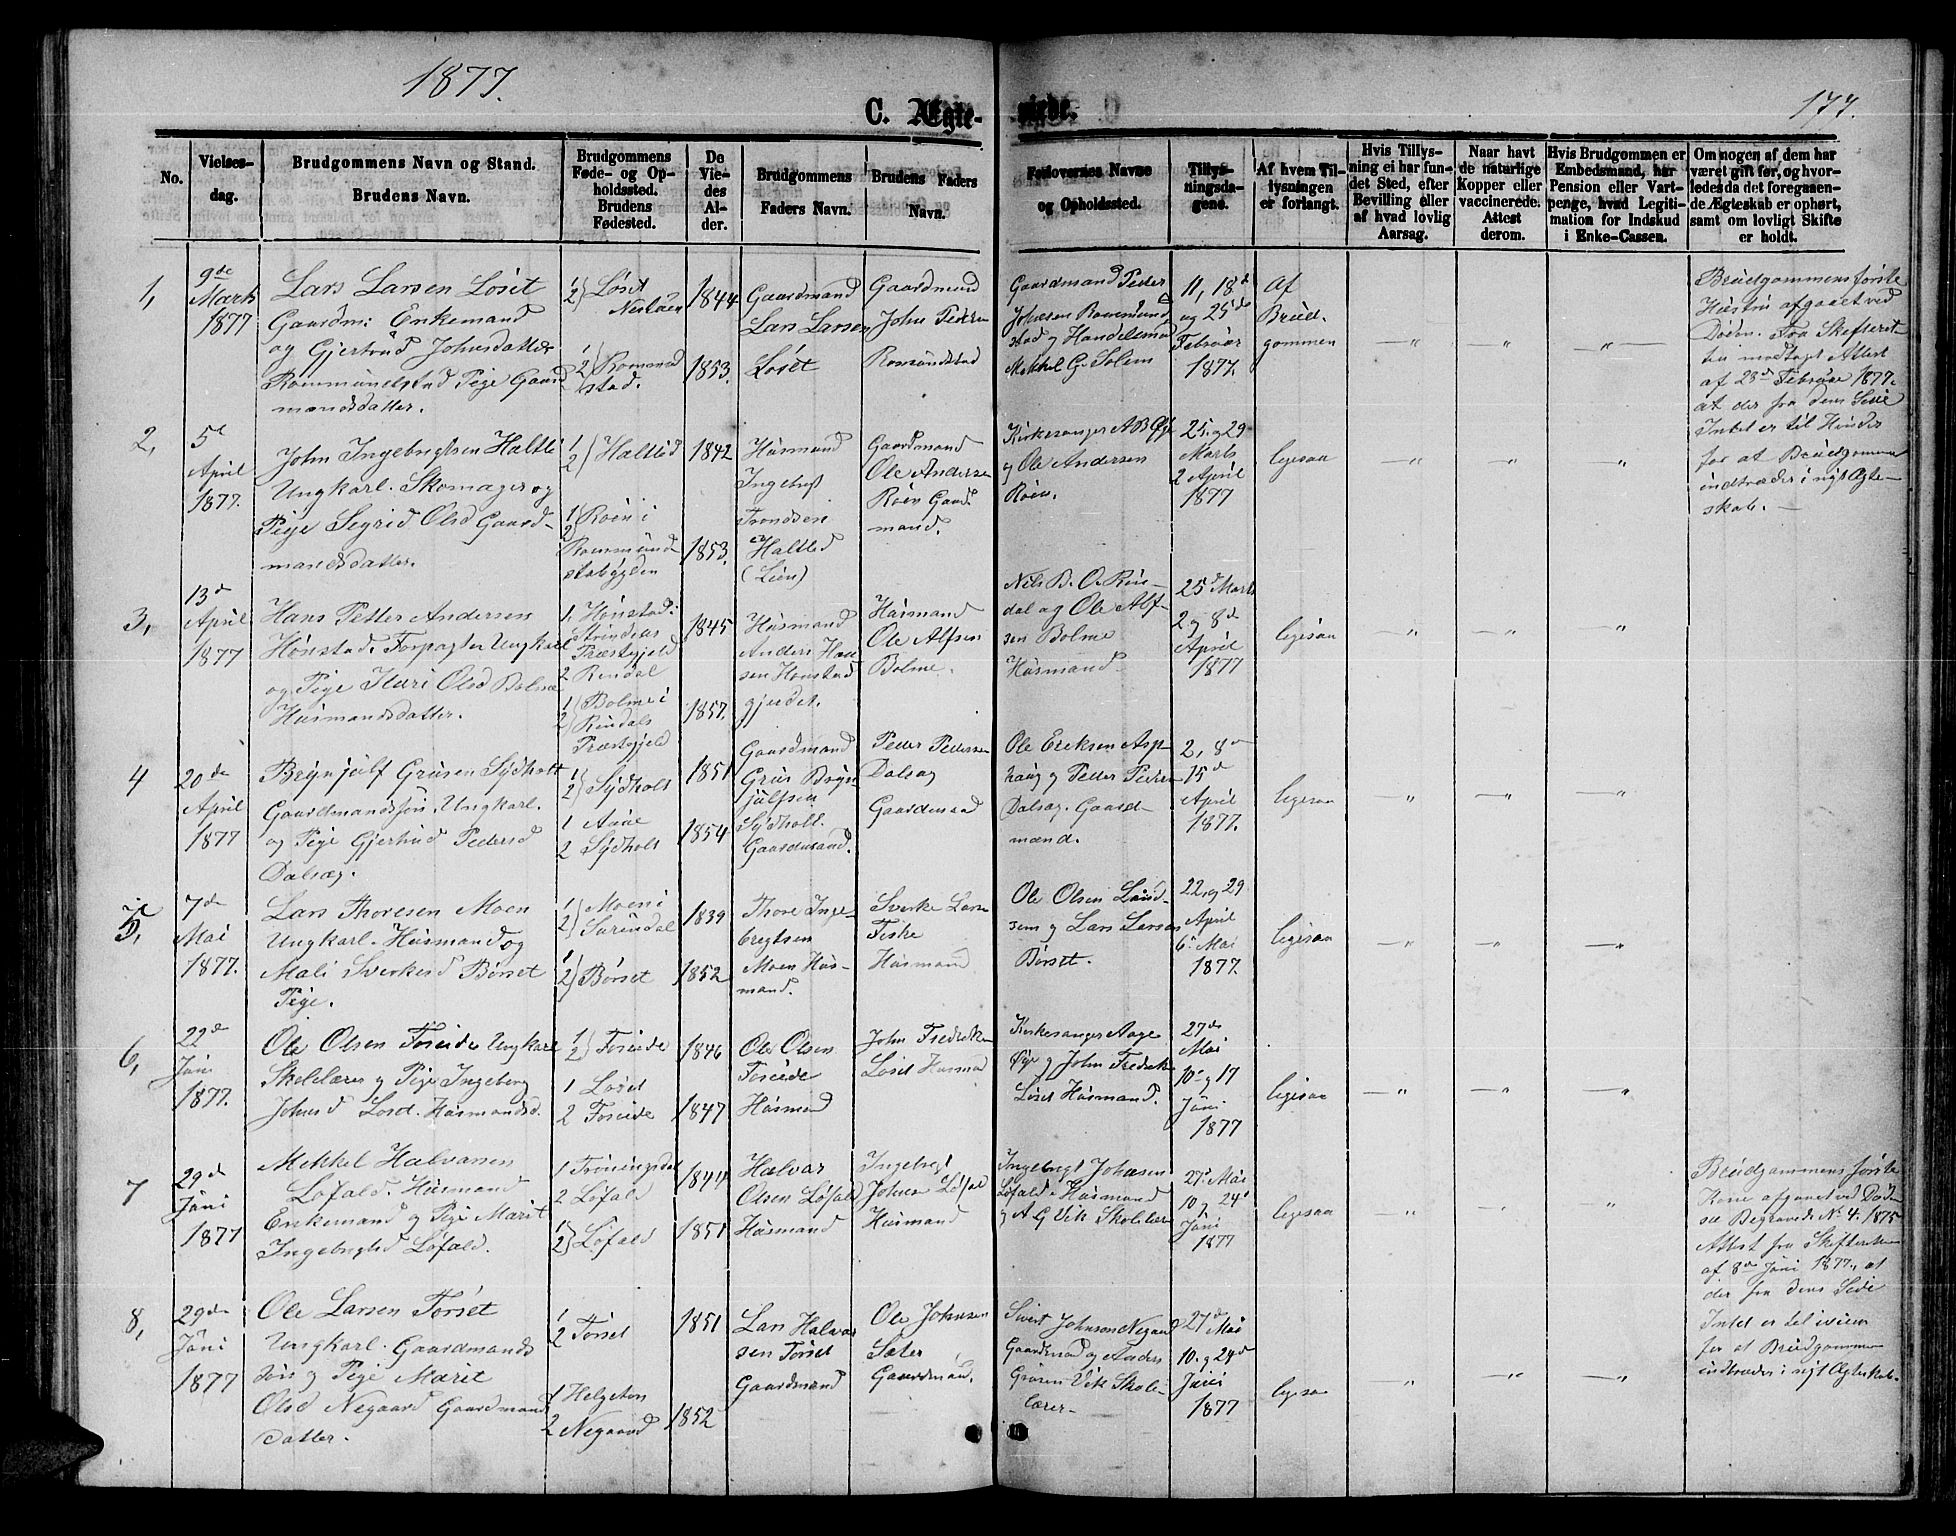 1877.
177.
C. Ægte-
viede.
No.
Vielses-
dag.
Brudgommens Navn og Stand.
Brudens Navn.
Brudgommens
Føde- og Op-
holdssted.
Brudens
Fødested.
De
Vie-
des
Al-
der.
Brudgommens
Faders Navn.
Brudens Faders
Navn.
Forlovernes Navne
og Opholdssted.
Tillys-
ningsda-
gene.
Af hvem Til-
lysningen
er forlangt.
Hvis Tillys-
ning ei har fun-
det Sted, efter
Bevilling eller
af hvad lovlig
Aarsag.
Naar havt
de naturlige
Kopper eller
vaccinerede.
Attest
derom.
Hvis Brudgommen er
Embedsmand, har
Pension eller Vart-
penge, hvad Legiti-
mation for Indskud
i Enke-Cassen.
Om nogen af dem har
været gift før, og hvor-
ledes da det foregaaen-
de Ægteskab er ophørt,
samt om lovligt Skifte
er holdt.
1,
9de
Marts
1877
Lars Larsen Løset
Gaardm: Enkemand
og Gjertrud Johnsdatter
Rommundstad Pige Gaard
mandsdatter.
1
2) Løset
1
2) Romund
stad.
1844
1853.
Gaardmand
Lars Larsen
Løset
Gaardmand
John Peders
Romundstad
Gaardmand Peder
Johnsen Rommund
stad og Handelsmd
Mekkel G. Solem
11, 18d
og 25de
Februar
1877.
Af
Brud-
gommen
— " — " — " —
Brudgommens første
Hustru afgaaet ved
Døden. Fra Skifteret
ten modtaget Attest
af 23de Februar 1877
at der fra dens Side
Intet er til Hinder
for at Brudgommen
indtræder i nyt Ægte-
skab. —
2,
5t
April
1877.
John Ingebrigtsen Haltli
Ungkarl. Skomager og
Pige Segrid Olsd Gaard-
mandsdatter.
1
2) Haltlid
1) Roen i
2) Rommund
stabygden
1842
1853.
Husmand
Ingebrigt
Trondsen
Haltlid
(Lien)
Gaardmand
Ole Anderse
Roen Gaard
mand.
Kirkesanger A B Øye
og Ole Andersen
Roen.
25. og 29
Marts
2 April
1877
ligesaa
— " — " — "
3,
13d
April
1877
Hans Petter Andersen
Honstad. Forpagter Ungkarl
og Pige Mari Olsd Bolme
Husmandsdatter.
1, Honstad i
Strindens
Præstegjeld
2 Rindal
1) Bolme i
2) Rindals
Præstegjeld
1845
1857.
Husmand
Anders Han
sen Honstad
gjerdet.
Husmand
Ole Alfsen
Bolme.
Nils B. O. Rin-
dal og Ole Alf-
sen Bolme
Husmand.
25d Marts
2 og 8d
April
1877
ligesaa
— " — " — "
4
20de
April
1877
Brynjulf Grusen Sydholt
Gaardmandssøn, Ungkarl.
og Pige Gjertrud Pedersd
Dalsæg.
1
2) Sydholt
1 Aune
2 Sydholt
1851
1854
Gaardmand
Grus Bryn
julfsen
Sydholt.
Gaardmand.
Petter Pedersen
Dalsæg
Gaardmand
Ole Eriksen Asp
haug og Petter Peders
Dalsæg. Gaard-
mænd.
2, 8de
15de
April
1877.
ligesaa
— " — " — "
5,
7de
Mai
1877.
Lars Thoresen Moen
Ungkarl. Husmand og
Mali Sverkesd Børset
Pige.
1) Moen i
2) Surendal
1
2) Børset
1839
1852
Thore Inge-
brigtsen
Moen Hus-
mand.
Sverke Lars
Fiske
Husmand
Ole Olsen Land-
sem og Lars Larsen
Børset.
22, og 29
April
6t Mai
1877
ligesaa
— " — " — "
6,
22d
Juni
1877.
Ole Olsen Foseide Ungkarl
Skolelærer og Pige Ingeberg
Johnsd Løset. Husmandsd.
1
2) Foseide
1 Løset
2 Foseide
1846
1847
Ole Olsen
Foseide
Husmand
John Fredrikse
Løset Husmand
Kirkesanger Aage
Øye og John Fredrikse
Løset Husmand.
27de
Mai
10de og 17
Juni
1877
ligesaa
— " — " — "
7
29d
Juni
1877
Mekkel Halvarsen
Løfald. Husmand
Enkemand og Pige Marit
Ingebrigtsd Løfald.
1 Trøningsdal
2 Løfald
1
2) Løfald
1844
1851
Halvar
Olsen Løfald
Husmand
Ingebrigt
Johnsen Løfald
Husmand
Ingebrigt Johnsen
Løfald. Husmand
og A G Vik Skolelær
27d Mai
10 og 24d
Juni
1877
ligesaa
— " — " "
Brudgommens første
Kone afgaaet ved Døde
se Begravede No. 4. 1875
Attest fra Skifteretten
af 8de Juni 1877, at
der fra dens Side
Intet er til iveien
for at Brudgommen
indtræder i nyt Ægteskab.
8,
29de
Juni
1877
Ole Larsen Torset
Ungkarl. Gaardmands
søn og Pige Marit
Olsd Negaard Gaardmands
datter.
1
2 Torset
1 Helgeton
2 Negaard
1851
1852
Lars Halvar
sen Torset
Gaardmand
Ole Johnsen
Sæter
Gaardmand.
Sivert Johnsen Negaard
Gaardmand og Anders
Grøsen Vik Skole-
lærer.
27d Mai
10. og 24d
Juni
1877
ligesaa
— " — " — "